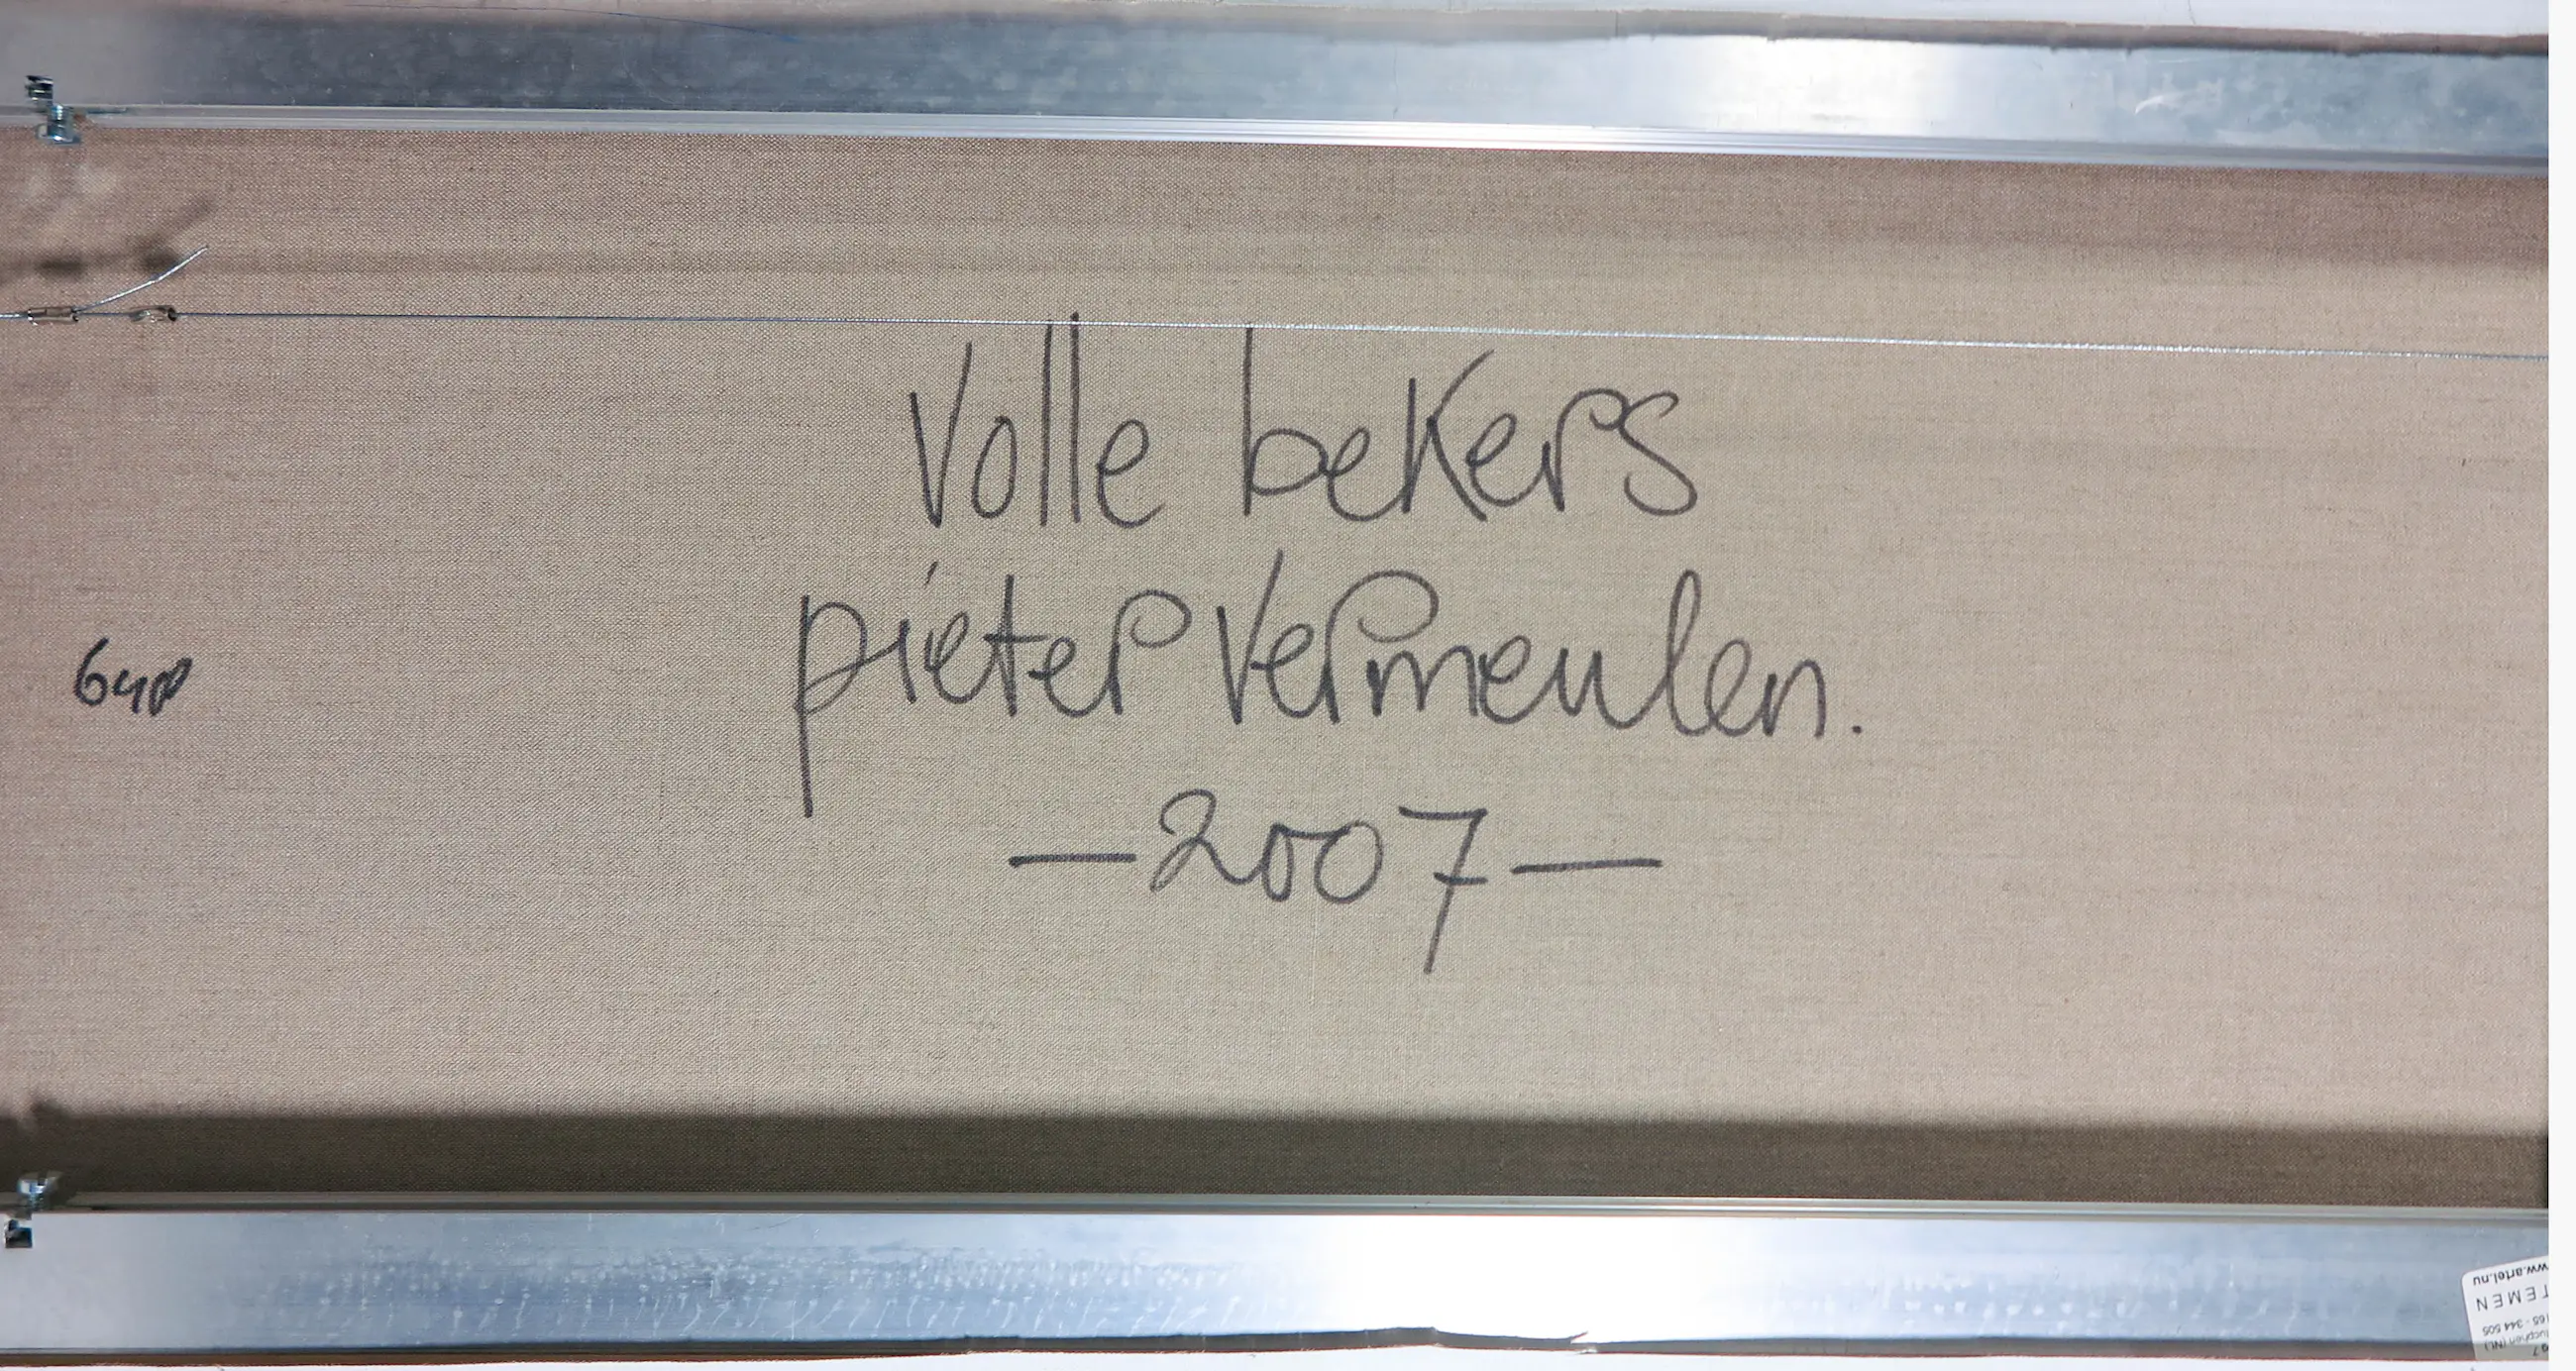 Volle bekers
pieter Vermeulen.
—2007—
www.artel.nu
TEMEN
165 - 344 505